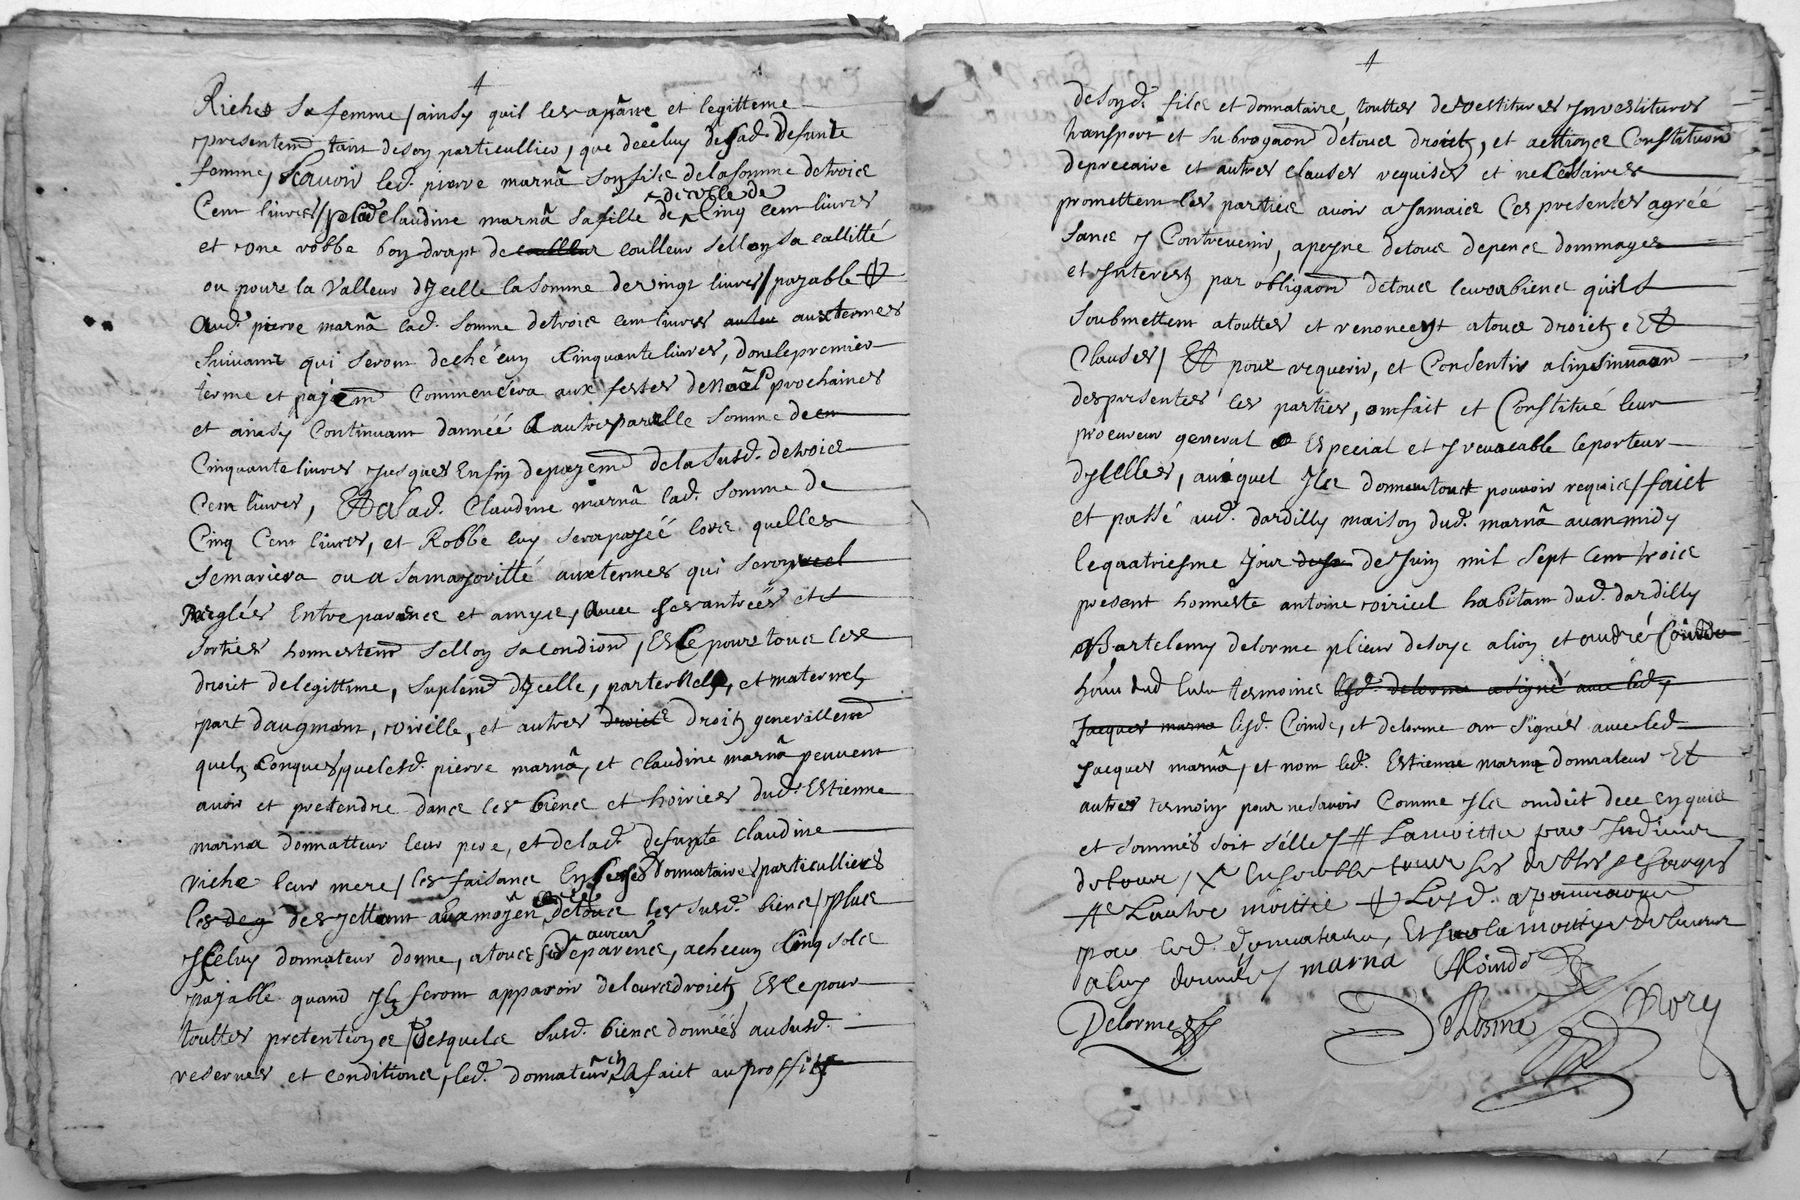 Riches sa femme / ainsy quil les apãrre et legitteme
presentem̃t tant deson particullier, que deceluy desad. defunte
femme, scavoir led. pierre marnã son fils delasomme detrois
Cent livres / et lad. claudine marnã sa fille de celle de Cinq cent livres
et une robbe bon drapt de coulleur sellon sa callitté
ou pour la valleur dycelle la somme de vingt livres / payable
aud. pierre marnã lad. somme detrois cent livres aux termes
suivant qui seront de chécun Cinquante livres, dont lepremier
terme et payem̃t commencera aux festes de Noël prochaines
et ainsy continuant dannéé a autre parelle somme de
Cinquante livres jusques Enfin depayem̃t de la susd. detrois
Cent livres, Et a lad. Claudine marnã lad. somme de
Cinq Cent livres, et Robbe luy sera payéé lors quelles
semariera ou a samajoritté aux termes qui seront
Reglés Entre parans et amys, avec ses antréés et
sorties honnestem̃t sellon sa condion, Et Ce pour tous les
droit delegittime, suplém̃t dycelle, parternels, et maternels
part daugment, virille, et autres droits generallem̃t
quels conques, que lesd. pierre marnã, et claudine marnã peuvent
avoir et pretendre dans les biens et hoiries dud. Estienne
marna donnatteur leur pere, et delad. defunte claudine
riche leur mere / les faisans En ses donnataires particulliers
les de desjettant au moyen dece detous les susd. biens / Plus
Iceluy donnateur donne, atous ses parens, achecun Cinq sols
payable quand Ils seront apparoir deleurs droits, Et Ce pour
touttes pretentions / desquels susd. biens donnés au susd.
reserves et conditions, led. donnateur a faict au proffit
desond. fils et donnataire, touttes devestitures Investitures
transport et subrogaõn detous droits, et actions Constitution
deprecaire et autres clauses requises et necessaires
promettent les parties avoir a Jamais Ces presentes agréé
sans y Contrevenir, apeyne detous depens dommages
et Interests par obligaõn detous leurs biens quils
soubmettent atouttes et renoncent atous droits Et
Clauses / Et pour requerir, et Consentir alinsinuaõn
des presentes les parties, ont fait et Constitué leur
procureur general Especial et yrevocable leporteur
dycelles, auquel Ils donnent tout pouvoir requis / faict
et passé aud. dardilly maison dud. marnã avant midy
lequatriesme jour de Juin mil sept Cent trois
present honneste antoine viricel habitant dud. dardilly
Bartelemy delorme plieur desoye a lion et andré Coinde
dud lieu tesmoins lesd. delorme a signé avec led.
Jacques marna lesd. Coinde, et delorme ont signés avec led
Jacques marnã, et nom led. Estienne marna donnateur Et
autres tesmoin pour ne scavoir Comme Ils ont dict dece Enquis
et sommés soit séllés / # La moittie par Indivis
detout / X Ensemble
# Lautre moittie
par led. donnataire, Et sur la moittye
a luy donnés / marna ACoinde
Delorme Delorme Nory